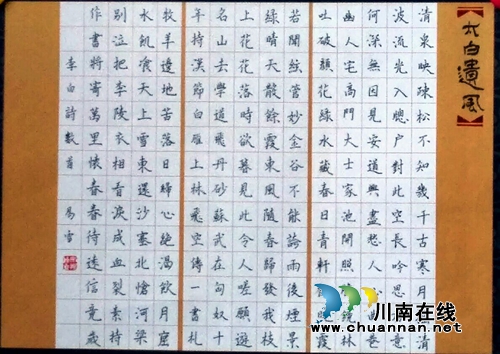 太白遺風
清泉映疎松不知幾千古寒月摇清
波流光入窓户對此空長吟思君意
何深無因見安道興盡愁人
幽人宅高門大士家池開照
吐破顔花緑水藏春日青軒
若聞絃管妙金谷不能誇雨後煙景
緑晴天散餘霞東風隨春歸發我枝
上花花落時欲暮見此令人嗟願遊
名山去學道飛丹砂蘇武在匈奴十
年持漢節白雁飛上林空傳一書札
牧羊邊地苦落日歸心絶渴飲月窟
水飢飡天上雪東還沙塞北愴河梁
別泣把李陵衣相看淚成血裂素持
作書將寄萬里懷眷眷待遠信竟歲
李白詩數首 易雪
川南在线
www.chuannan.net